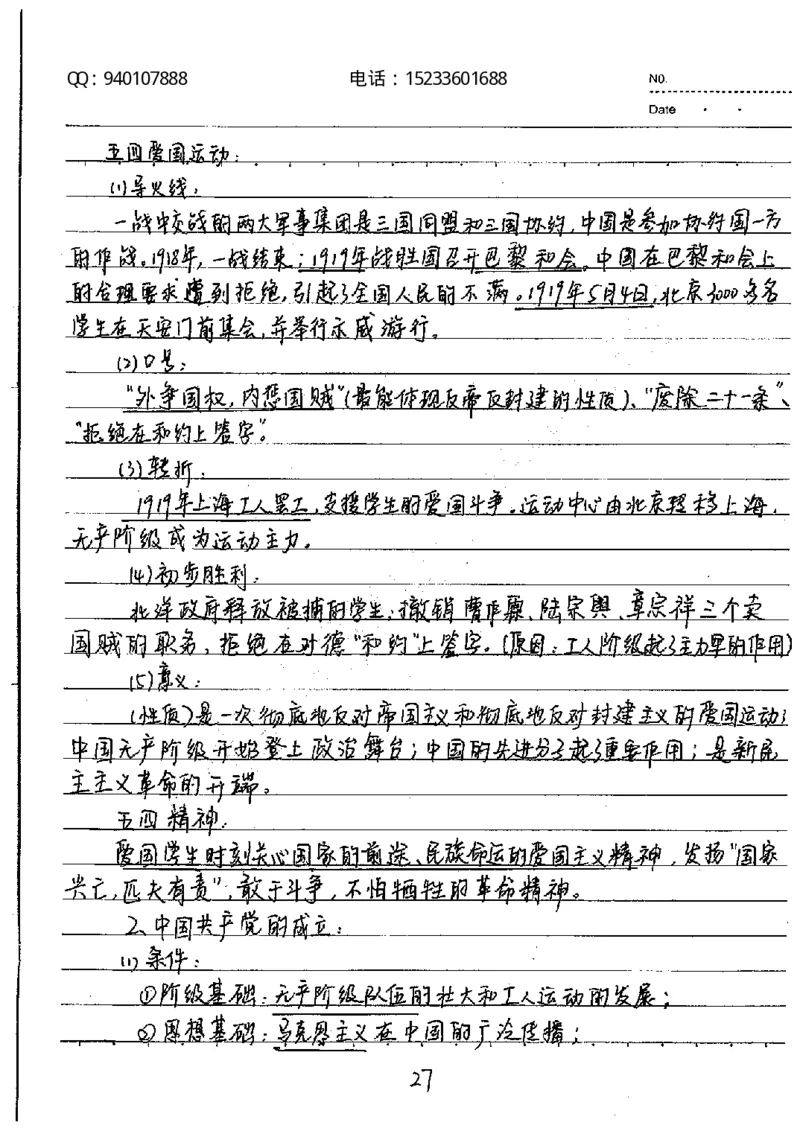 QQ：940107888 电话：15233601688 NO.
Date
五四爱国运动：
(1)导火线：
一战中交战的两大军事集团是三国同盟和三国协约，中国是参加协约国一方
的作战。1918年，一战结束；1919年战胜国召开巴黎和会。中国在巴黎和会上
的合理要求遭到拒绝，引起了全国人民的不满。1919年5月4日，北京3000多名
学生在天安门前集会，并举行示威游行。
(2)口号：
“外争国权，内惩国贼”(最能体现反帝反封建的性质)、“废除二十一条”、
“拒绝在和约上签字”。
(3)转折：
1919年上海工人罢工，支援学生的爱国斗争。运动中心由北京转移上海，
无产阶级成为运动主力。
(4)初步胜利：
北洋政府释放被捕的学生，撤销曹汝霖、陆宗舆、章宗祥三个卖
国贼的职务，拒绝在对德“和约”上签字。(原因：工人阶级起了主力军的作用)
(5)意义：
(性质)是一次彻底地反对帝国主义和彻底地反对封建主义的爱国运动；
中国无产阶级开始登上政治舞台；中国的先进分子起了重要作用；是新民
主主义革命的开端。
五四精神：
爱国学生时刻关心国家的前途、民族命运的爱国主义精神，发扬“国家
兴亡，匹夫有责”，敢于斗争，不怕牺牲的革命精神。
2、中国共产党的成立：
(1)条件：
①阶级基础：无产阶级队伍的壮大和工人运动的发展；
②思想基础：马克思主义在中国的广泛传播；
27